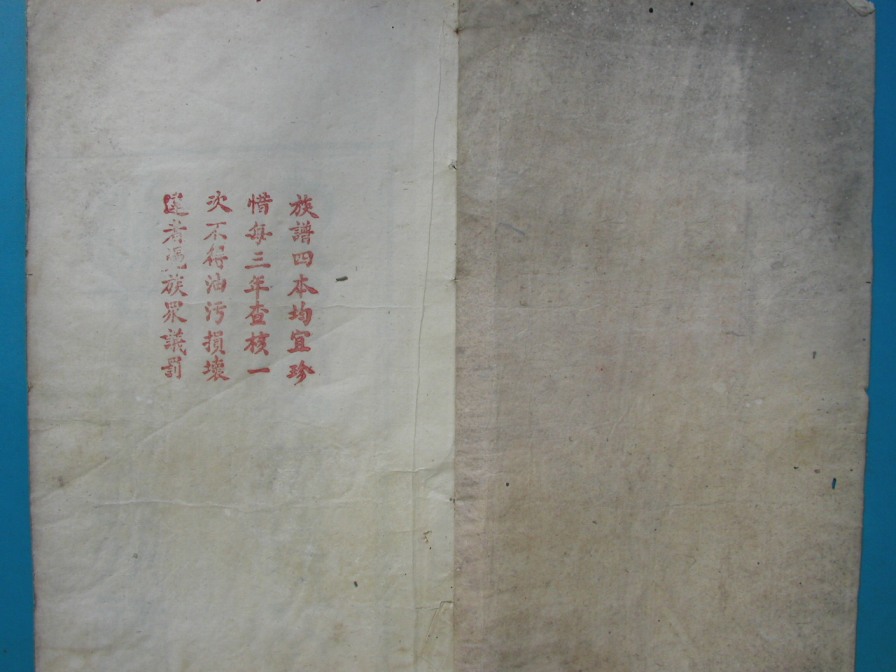 族譜四本均宜珍
惜每三年查核一
次不得油污損壞
違者憑族眾議罰